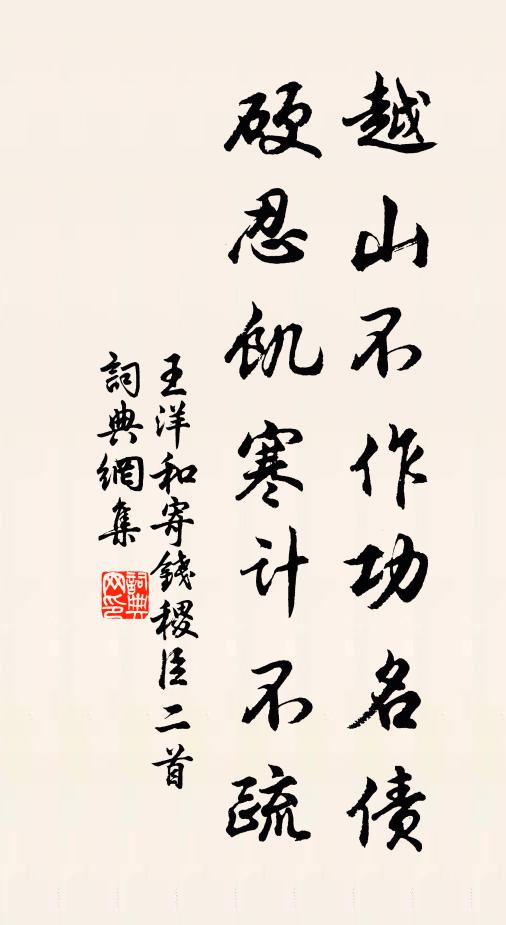 越山不作功名债
硬忍飢寒计不疏
王洋和寄錢稷臣二首
詞典網集
詞典网印